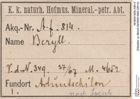 K. k. naturh. Hofmus. Mineral.-petr. Abt.
Akq.-Nr. A.f. 814.
Name: Beryll.
V.d.N. 349. 27/67 M. 4652.
Fundort Adúntschilon